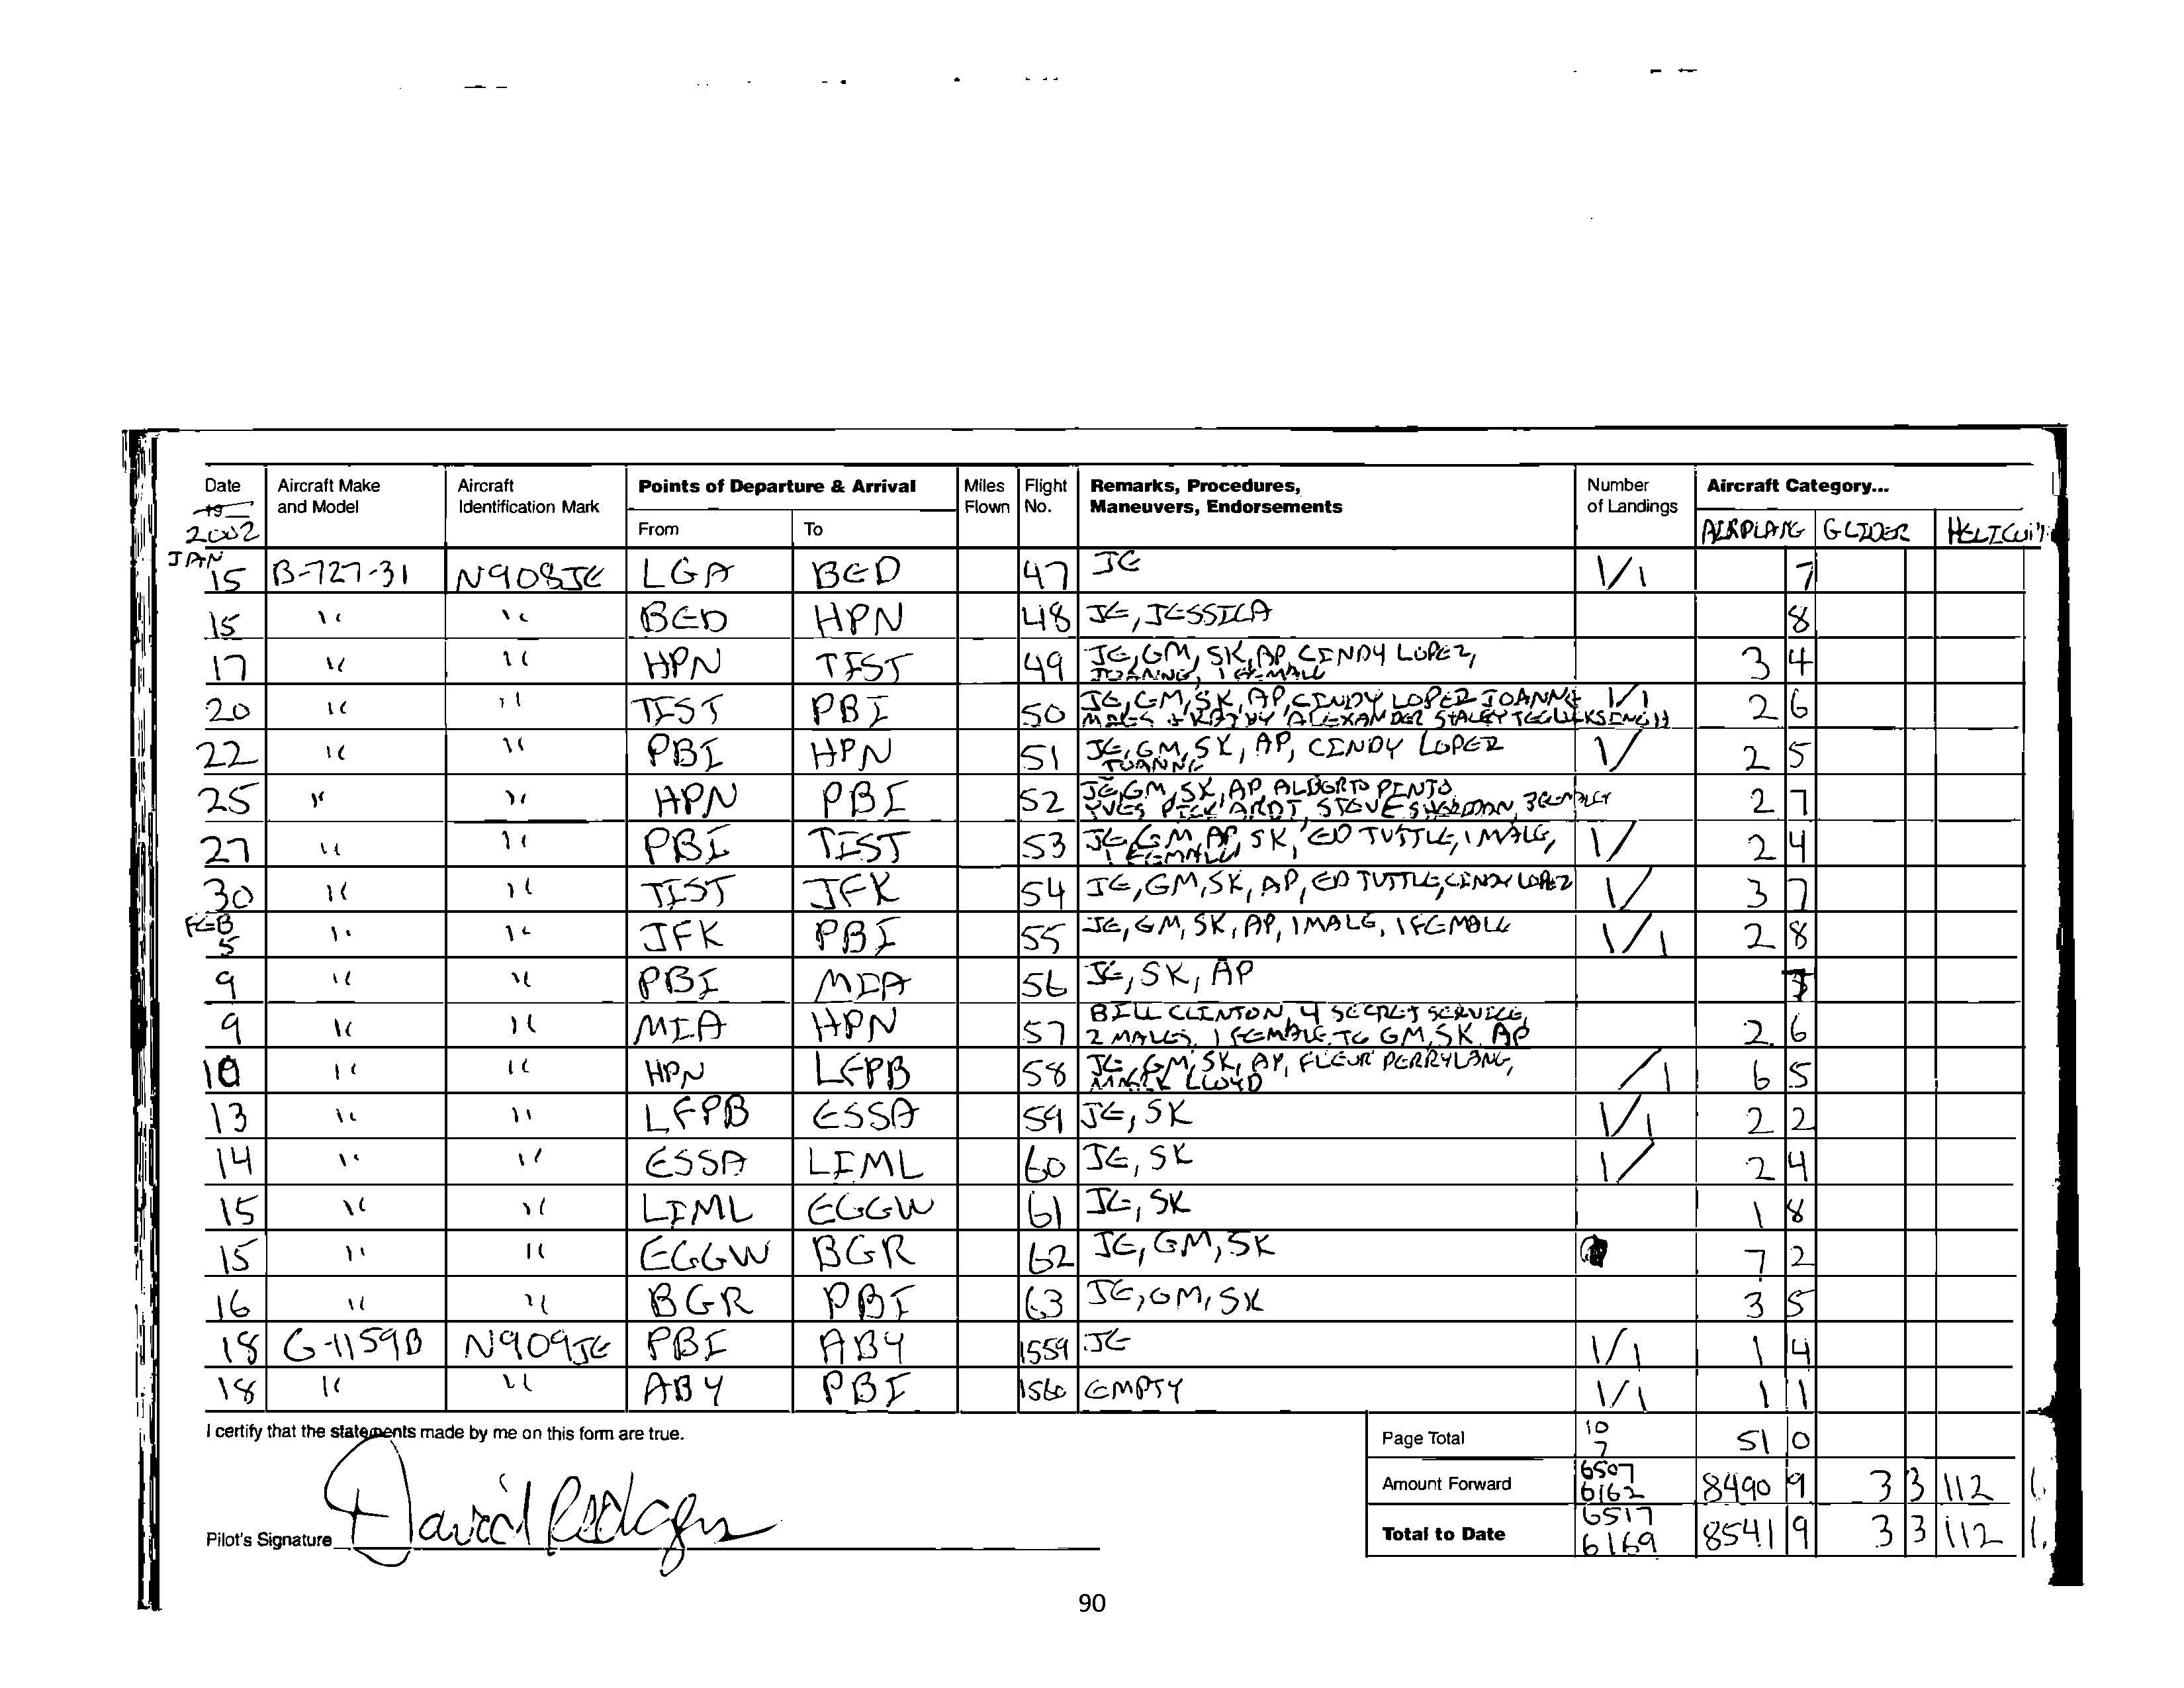 Date Aircraft Make and Model Aircraft Identification Mark Points of Departure & Arrival Miles Flown Flight No. Remarks, Procedures, Maneuvers, Endorsements Number of Landings Aircraft Category...
19 2002 From To AIRPLANE GLIDER
JAN
15 B-727-31 N908JE LGA BED 47 JE 1/1 7
15 " " BED HPN 48 JE, JESSICA 8
17 " " HPN TIST 49 JE, GM, SK, AP, CINDY LOPEZ, 3 4
JOANNE, 1 FEMALE
20 " " TIST PBI 50 JE, GM, SK, AP, CINDY LOPEZ JOANNE 1/1 2 6
ALEXANDER STALEY
22 " " PBI HPN 51 JE, GM, SK, AP, CINDY LOPEZ 1/ 2 5
JOANNE
25 " " HPN PBI 52 JE, GM, SK, AP, ALBERTO PINTO 2 7
YVES PICKARDT, STEVE 3 FEMALES
27 " " PBI TIST 53 JE, GM, AP, SK, ED TUTTLE, 1 MALE, 1/ 2 4
1 FEMALE
30 " " TIST JFK 54 JE, GM, SK, AP, ED TUTTLE, CINDY LOPEZ 1/ 3 7
FEB
5 " " JFK PBI 55 JE, GM, SK, AP, 1 MALE, 1 FEMALE 1/1 2 8
9 " " PBI MIA 56 JE, SK, AP
9 " " MIA HPN 57 BILL CLINTON, 4 SECRET SERVICE, 2 6
2 MALES, 1 FEMALE, JE GM, SK, AP
10 " " HPN LFPB 58 JE, GM, SK, AP, FLEUR PERRYLANG, /1 6 5
MARK LLOYD
13 " " LFPB ESSA 59 JE, SK 1/1 2 2
14 " " ESSA LIML 60 JE, SK 1/ 2 4
15 " " LIML EGGW 61 JE, SK 1 8
15 " " EGGW BGR 62 JE, GM, SK 7 2
16 " " BGR PBI 63 JE, GM, SK 3 5
18 G-1159B N909JE PBI ABY 1559 JE 1/1 1 4
18 " " ABY PBI 1560 EMPTY 1/1 1 1
I certify that the statements made by me on this form are true.
Page Total 10 7 51 0
Amount Forward 6507 6162 8490 9 3 3 112 1.
Pilot's Signature David Rodgers
Total to Date 6517 6169 8541 9 3 3 112 1.
90